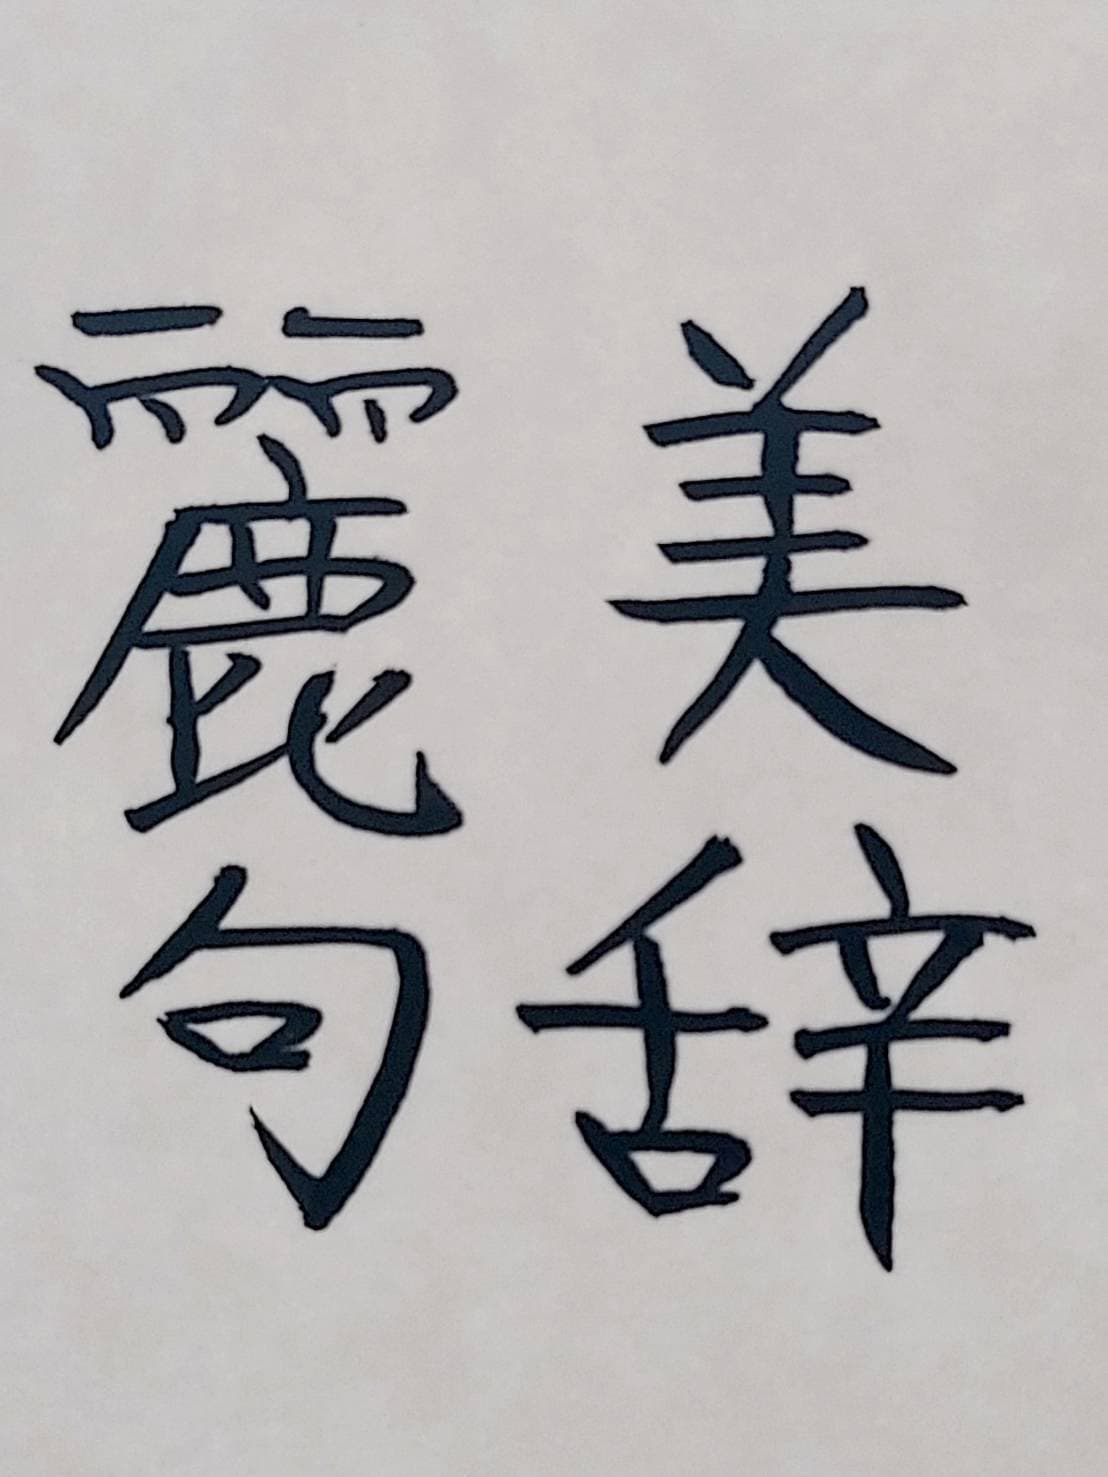 美辞
麗句